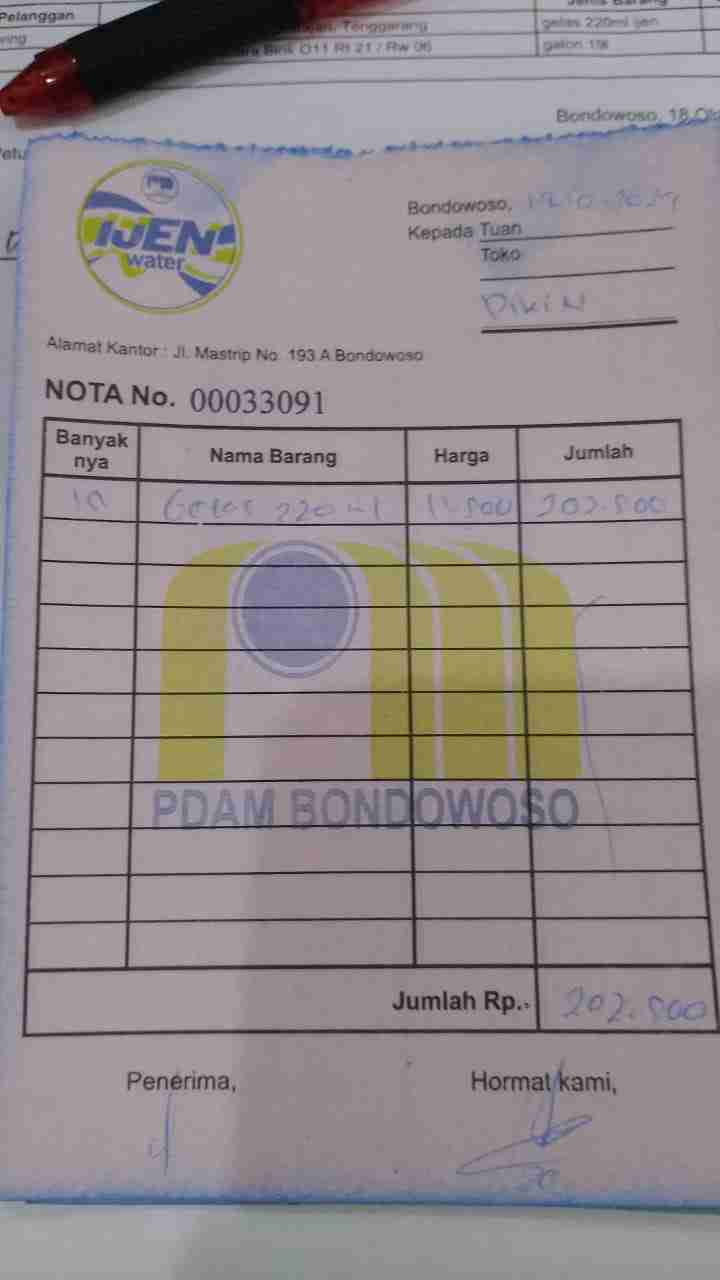 Pelanggan
Tenggarang
gelas 220ml ijen
Blok O11 Rt 21 / Rw 06
galon 19l
Bondowoso, 18 Ok
IJEN
water
Bondowoso,
Kepada Tuan
Toko
Dikin
Alamat Kantor : Jl. Mastrip No. 193 A Bondowoso
NOTA No. 00033091
Banyak nya Nama Barang Harga Jumlah
Gelas 220 ml 202.500
PDAM BONDOWOSO
Jumlah Rp. 202.500
Penerima, Hormat kami,